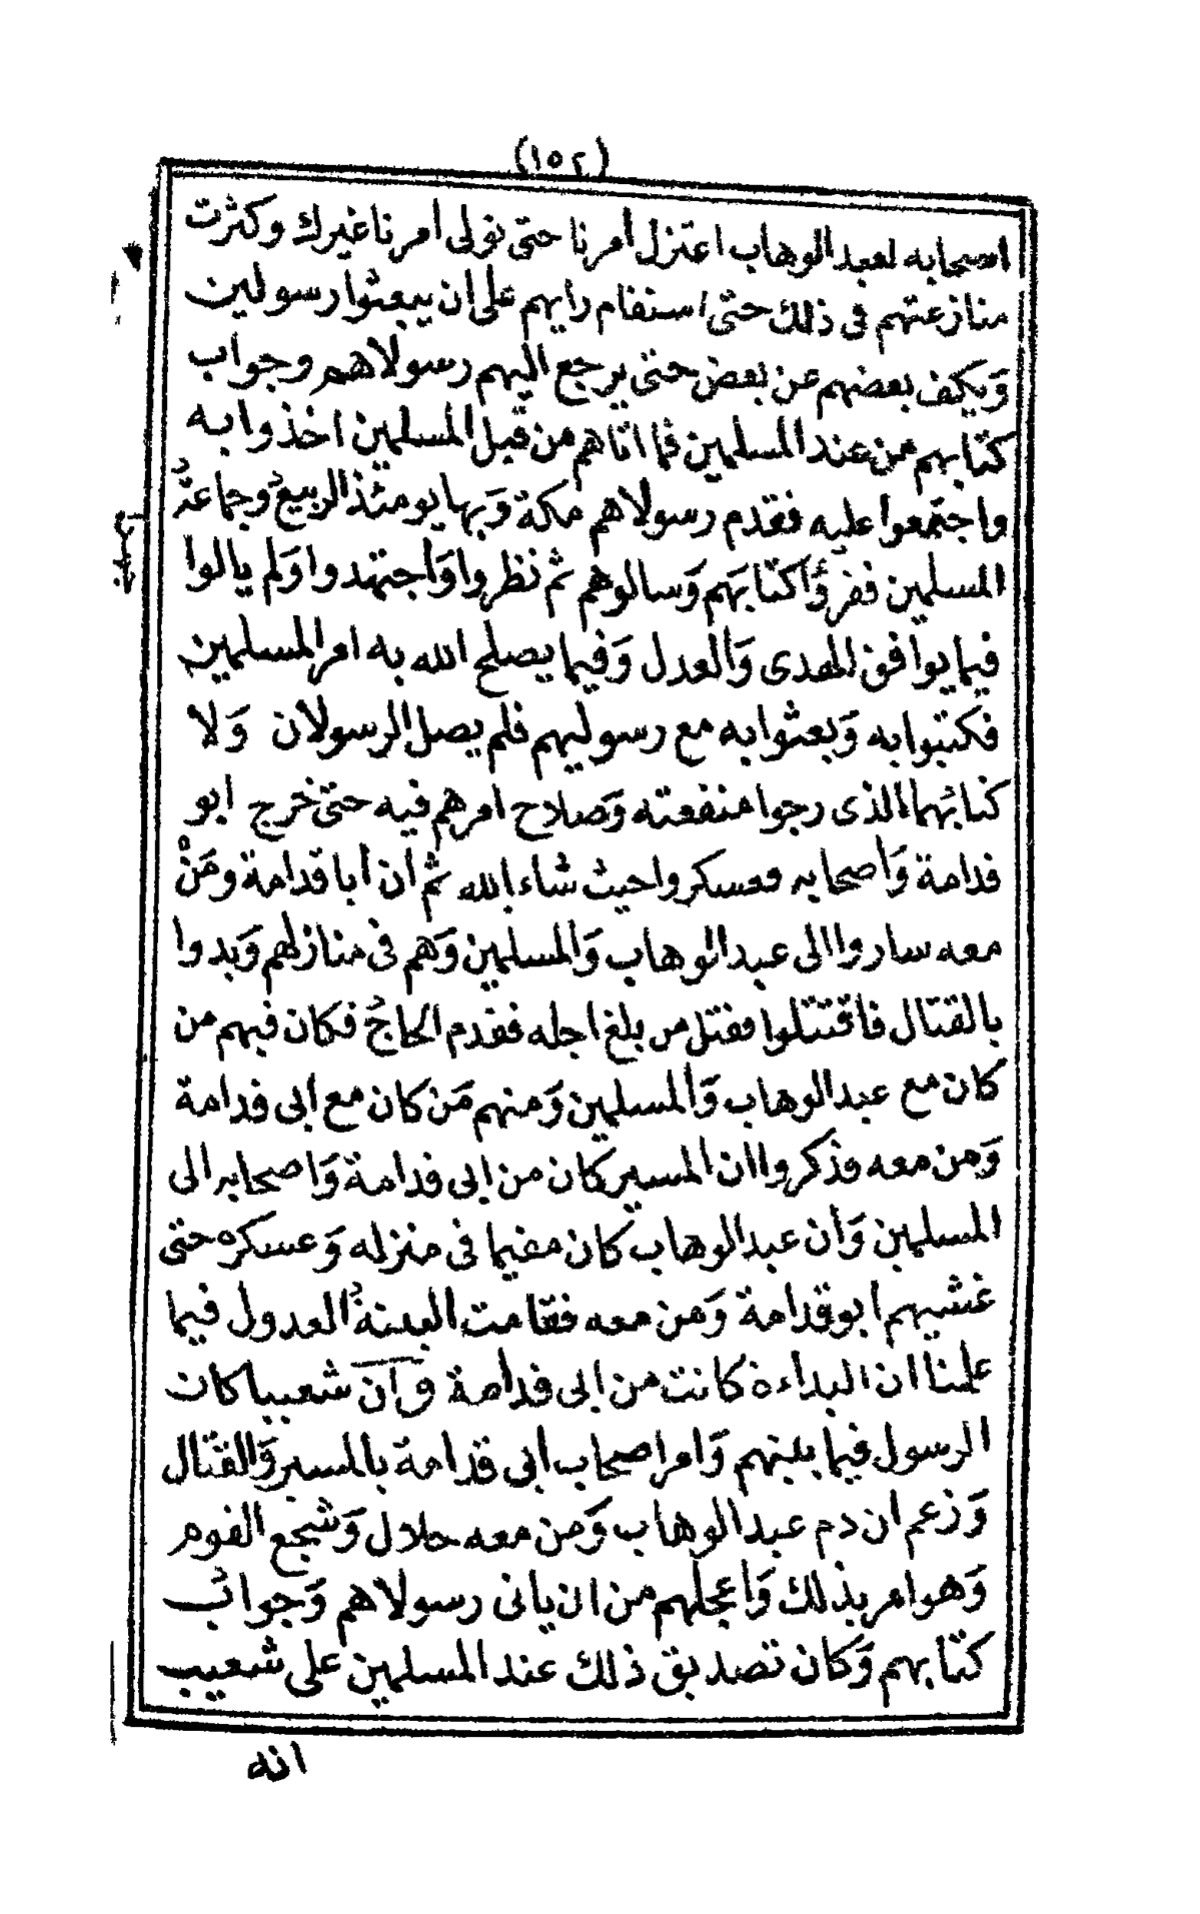 (١٥٢)
اصحابه لعبد الوهاب اعتزل امرنا حتى نولى امرنا غيرك وكثرت
منازعتهم فى ذلك حتى استقام رايهم على ان يبعثوا رسولين
وَيكف بعضهم عن بعض حتى يرجع اليهم رسولاهم وجواب
كتابهم من عند المسلمين فما اتاهم من قبل المسلمين اخذوا به
واجتمعوا عليه فقدم رسولاهم مكة وَبها يومئذ الربيعُ وجماعةُ
المسلمين فقرؤُا كتابَهم وَسالوهم ثم نظروا وَاجتهدوا وَلم يالوا
فيما يوافق الهدى وَالعدل وَفيما يصلح الله به امر المسلمين
فكتبوا به وَبعثوا به مع رسوليهم فلم يصل الرسولان وَلا
كتابُهما الذى رجوا منفعته وَصلاح امرهم فيه حتى خرج ابو
قدامة وَاصحابه فعسكروا حيث شاء الله ثم ان ابا قدامة ومَنْ
معه ساروا الى عبد الوهاب وَالمسلمين وَهم فى منازلهم وَبدوا
بالقتال فاقتتلوا فقتل من بلغ اجله فقدم الحاجُ فكان فيهم من
كان مع عبد الوهاب وَالمسلمين وَمنهم مَن كان مع ابى قدامة
وَمن معه وذكروا ان المسير كان من ابى قدامة وَاصحابه الى
المسلمين وَان عبد الوهاب كان مقيما فى منزله وَعسكره حتى
غشيهم ابو قدامة وَمن معه فقامت البينةُ العدول فيما
علمنا ان البداءة كانت من ابى قدامة وان شعيبا كان
الرسول فيما بينهم وَامر اصحاب ابى قدامة بالمسير وَالقتال
وَزعم ان دم عبد الوهاب وَمن معه حلال وَشجع القوم
وَهو امر بذلك وَاعجلهم من ان ياتى رسولاهم وَجوابُ
كتابهم وَكان تصديق ذلك عند المسلمين على شعيب
انه